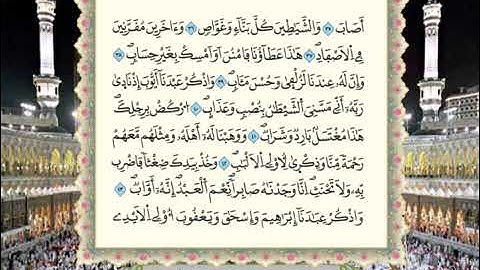 أَصَابَ ۝٣٦ وَالشَّيَٰطِينَ كُلَّ بَنَّآءٖ وَغَوَّاصٖ ۝٣٧ وَءَاخَرِينَ مُقَرَّنِينَ
فِي الۡأَصۡفَادِ ۝٣٨ هَٰذَا عَطَآؤُنَا فَامۡنُنۡ أَوۡ أَمۡسِكۡ بِغَيۡرِ حِسَابٖ ۝٣٩
وَإِنَّ لَهُۥ عِندَنَا لَزُلۡفَىٰ وَحُسۡنَ مَـَٔابٖ ۝٤٠ وَاذۡكُرۡ عَبۡدَنَآ أَيُّوبَ إِذۡ نَادَىٰ
رَبَّهُۥٓ أَنِّي مَسَّنِيَ الشَّيۡطَٰنُ بِنُصۡبٖ وَعَذَابٍ ۝٤١ ارۡكُضۡ بِرِجۡلِكَۖ
هَٰذَا مُغۡتَسَلُۢ بَارِدٞ وَشَرَابٞ ۝٤٢ وَوَهَبۡنَا لَهُۥٓ أَهۡلَهُۥ وَمِثۡلَهُم مَّعَهُمۡ
رَحۡمَةٗ مِّنَّا وَذِكۡرَىٰ لِأُوْلِي الۡأَلۡبَٰبِ ۝٤٣ وَخُذۡ بِيَدِكَ ضِغۡثٗا فَاضۡرِب
بِّهِۦ وَلَا تَحۡنَثۡۗ إِنَّا وَجَدۡنَٰهُ صَابِرٗاۚ نِّعۡمَ الۡعَبۡدُ إِنَّهُۥٓ أَوَّابٞ ۝٤٤
وَاذۡكُرۡ عِبَٰدَنَآ إِبۡرَٰهِيمَ وَإِسۡحَٰقَ وَيَعۡقُوبَ أُوْلِي الۡأَيۡدِي